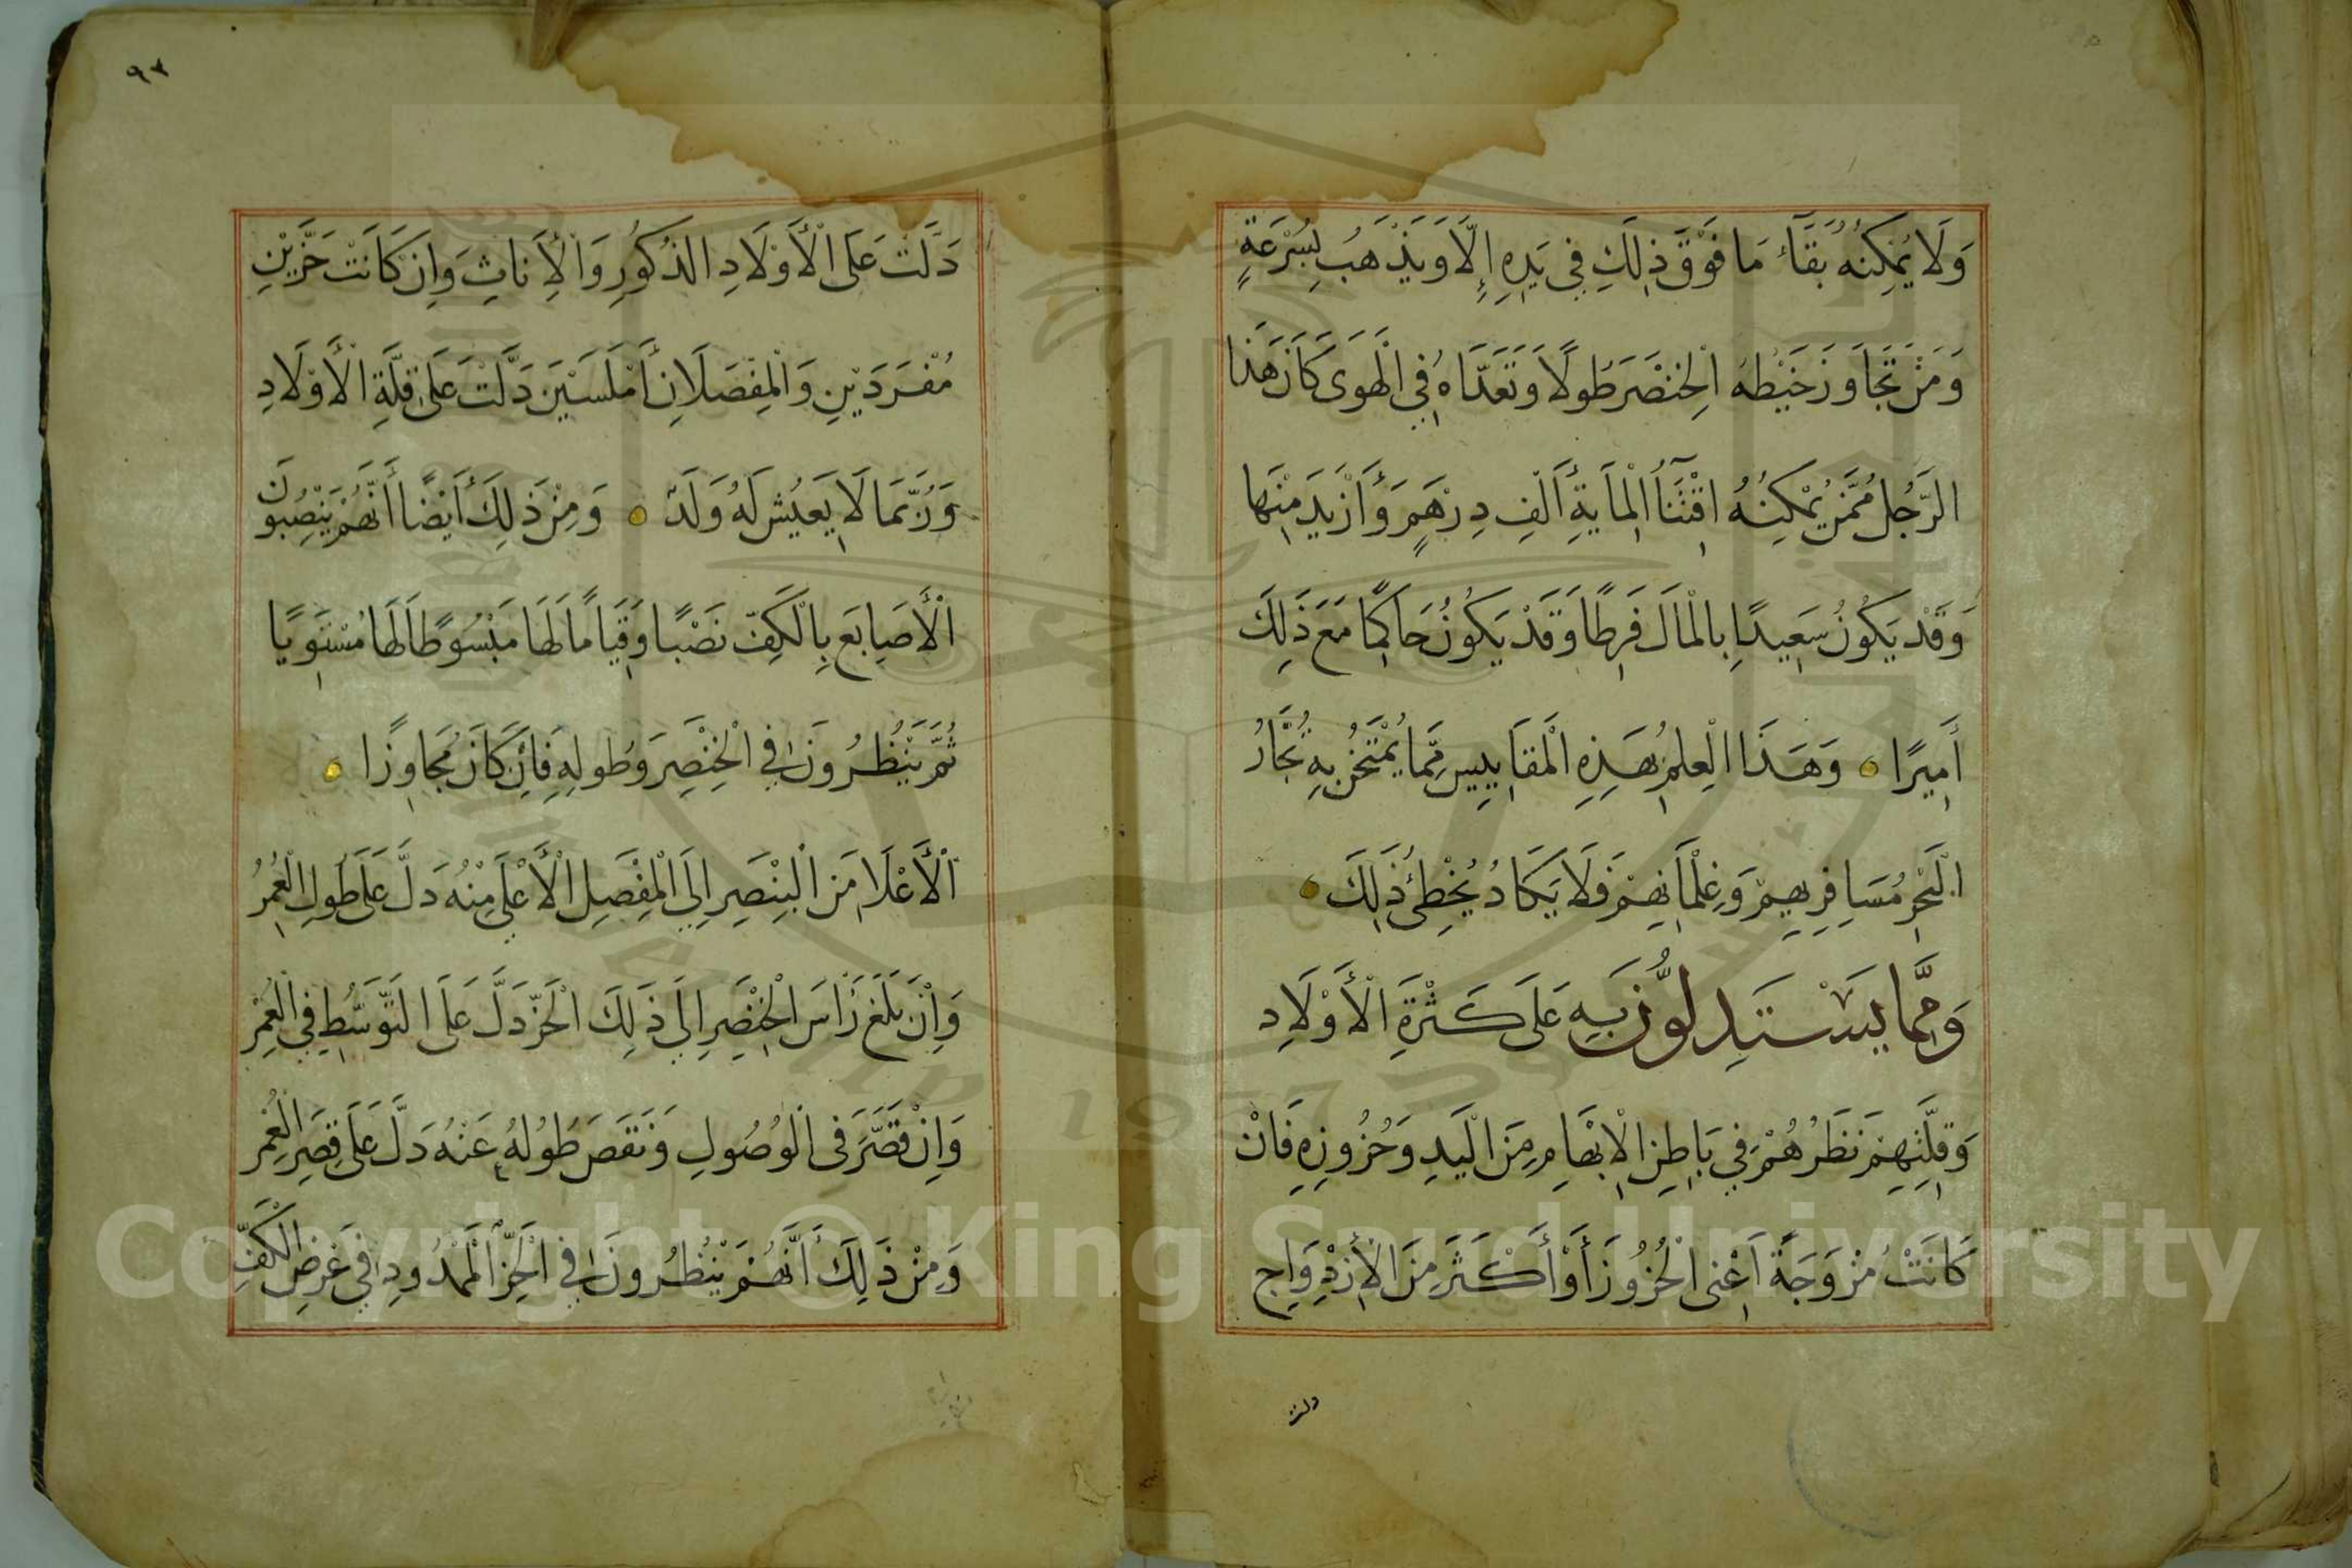 وَلَا يُمْكِنُهُ بَقَاءُ مَا فَوْقَ ذٰلِكَ فِي يَدِهِ إِلَّا وَيَذْهَبُ بِسُرْعَةٍ
وَمَنْ تَجَاوَزَ خَيْطُهُ الْخِنْصَرَ طُولًا وَتَعَدَّاهُ فِي الْهَوَى كَانَ هَذَا
الرَّجُلُ مِمَّنْ يُمْكِنُهُ اقْتِنَآءُ الْمِايَةِ أَلْفِ دِرْهَمٍ وَأَزْيَدَ مِنْهَا
وَقَدْ يَكُونُ سَعِيدًا بِالْمَالِ فَرِطًا وَقَدْ يَكُونُ حَاكِمًا مَعَ ذَلِكَ
أَمِيرًا وَهَذَا الْعِلْمُ بِهَذِهِ الْمَقَايِيسِ مِمَّا يَمْتَحِنُ بِهِ تُجَّارُ
الْبَحْرِ مُسَافِرِيهِمْ وَغِلْمَانِهِمْ فَلَا يَكَادُ يُخْطِئُ ذَلِكَ
وَمِمَّا يَسْتَدِلُّونَ بِهِ عَلَى كَثْرَةِ الْأَوْلَادِ
وَقِلَّتِهِمْ نَظَرُهُمْ فِي بَاطِنِ الْإِبْهَامِ مِنَ الْيَدِ وَحُزُوزِهِ فَإِنْ
كَانَتْ مُزْوَجَةً أَعْنِي الْحُزُوزَ أَوْ أَكْثَرَ مِنَ الْأَزْدِوَاجِ
دلت
٩٢
دَلَّتْ عَلَى الْأَوْلَادِ الذُكُورِ وَالْإِنَاثِ وَإِنْ كَانَتْ حَزَّيْنِ
مُفْرَدَيْنِ وَالْمِفْصَلَانِ أَمْلَسَيْنِ دَلَّتْ عَلَى قِلَّةِ الْأَوْلَادِ
وَرُبَّمَا لَا يَعِيشُ لَهُ وَلَدٌ وَمِنْ ذَلِكَ أَيْضًا أَنَّهُمْ يَنْصِبُونَ
الْأَصَابِعَ بِالْكَفِّ نَصْبًا وَقِيَامًا لَهَا مَبْسُوطًا لَهَا مُسْتَوِيًا
ثُمَّ يَنْظُرُونَ فِي الْخِنْصِرِ وَطُولِهِ فَإِنْ كَانَ مُجَاوِزًا
الْأَعْلَا مِنَ الْبِنْصِرِ إِلَى الْمِفْصِلِ الْأَعْلَى مِنْهُ دَلَّ عَلَى طُولِ الْعُمُرِ
وَإِنْ بَلَغَ رَأسَ الْخِنْصِرِ إِلَى ذَلِكَ الْحَزِّ دَلَّ عَلَى التَّوَسُّطِ فِي الْعُمْرِ
وَإِنْ قَصَّرَ فِى الْوُصُولِ وَنَقَصَ طُولُهُ عَنْهُ دَلَّ عَلَى قِصَرِ الْعُمْرِ
وَمِنْ ذَلِكَ أَنَّهُمْ يَنْظُرُونَ فِي الْحَزِّ الْمَمْدُودِ فِي عَرْضِ الْكَفِّ
Copyright © King Saud University
1957